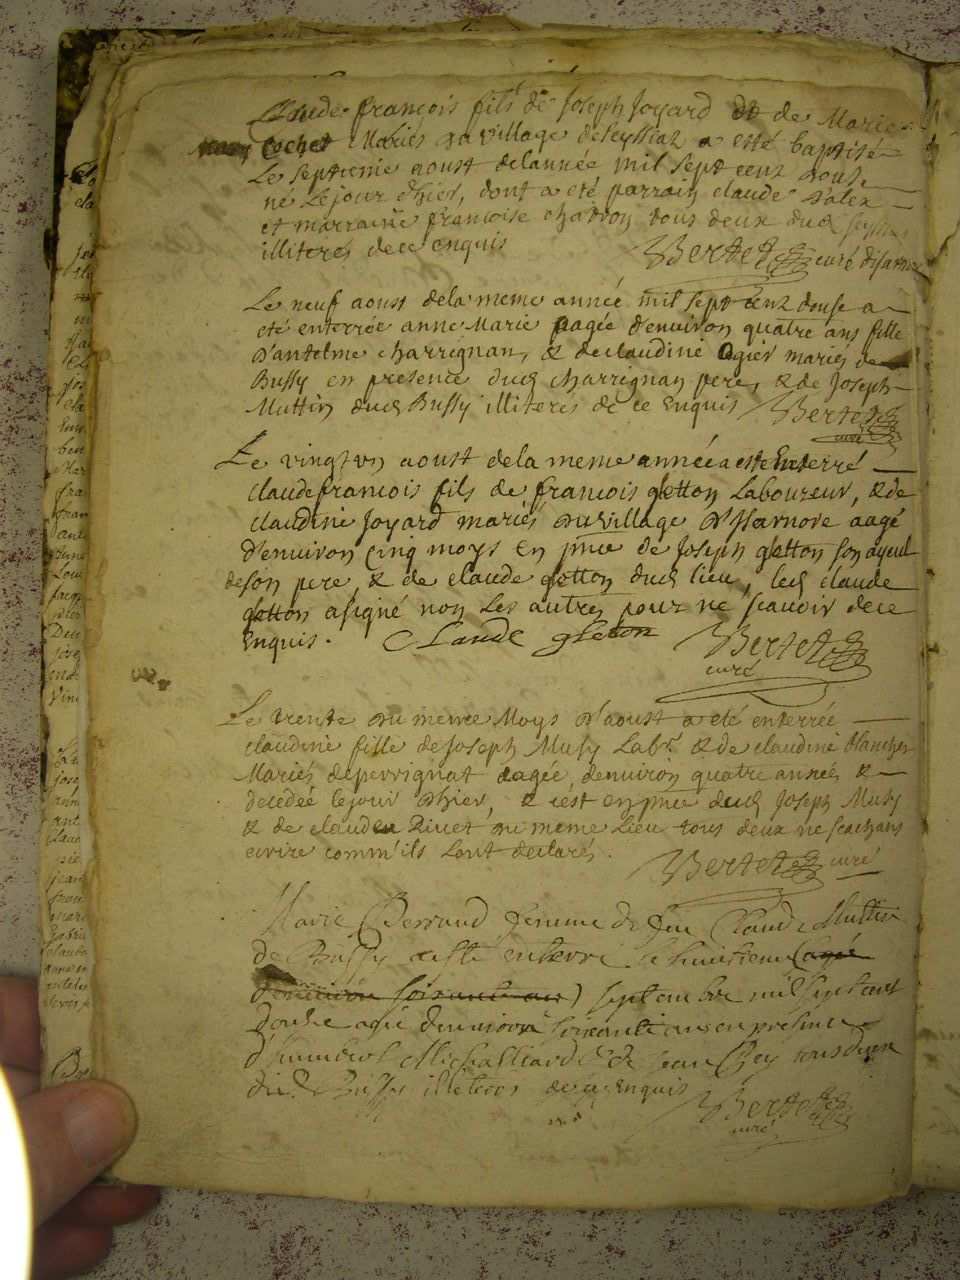 Claude francois fils de Joseph Joyard et de Marie
Cochet Mariés du village de Seyssiat a esté baptisé
Le septieme aoust de lannée mil sept cent douse
né Le jour d'hier, dont a eté parrain claude
et marraine francoise chatton tous deux dud
illiteres de ce enquis Bertet curé disarnore
Le neuf aoust dela meme année mil sept cent douse a
eté enterrée anne Marie aagée d'enuiron quatre ans fille
d'antelme charrignan, & de claudine ogier mariés de
Bussy en presence dud charrignan pere, & de Joseph
Muttin dud Bussy illiteres de ce enquis Bertet
curé
Le vingt vn aoust dela meme année a esté Enterré
claude francois fils de francois gletton Laboureur, & de
claudine Joyard mariés du village d'Isarnore aagé
d'enuiron cinq moys En pnce de Joseph gletton son ayeul
de son pere, & de claude gletton dud lieu, led claude
gletton a signé non Les autres pour ne scauoir de ce
Enquis. Claude gleton Bertet
curé
Le trente du meme Moys d'aoust a eté enterrée
claudine fille de Joseph Musy Labr. & de claudine blanchet
Mariés de perrignat aagée denuiron quatre années &
decedée le jour d'hier, & c'ést en pnce dud Joseph Musy
& de claude Riuet du meme Lieu tous deux ne scachans
ecrire comm'ils l'ont declarés. Bertet curé
Marie Perraud femme de feu Claude Muttin
de Bussy a esté enterré le huictieme (agée
d'enuiron soixante ans) septembre mil sept cent
Douhe agée denuiron soixante ans en presence
d'humbert Michalliard & de Jean Rey tous deux
dud Bussy illeteres de ce enquis
Bertet
curé